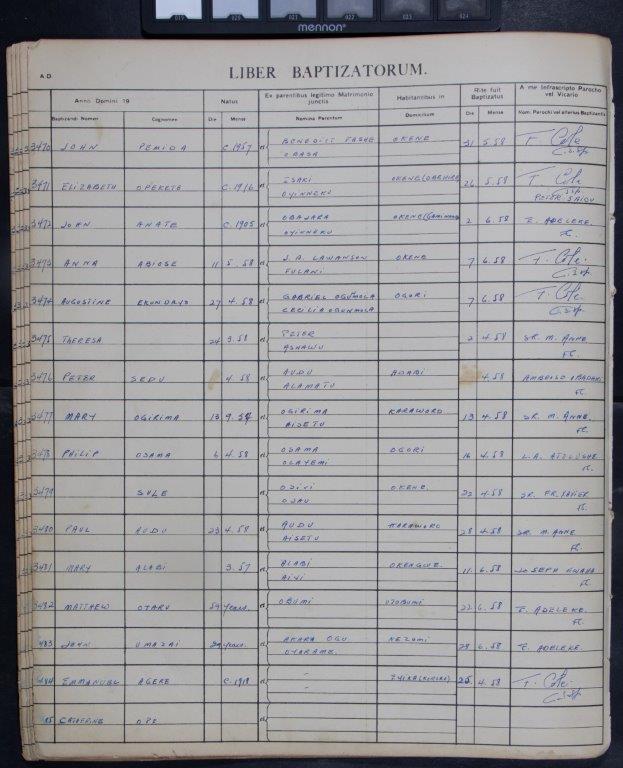 019 020 021 022 023 024
mennon
A D.
LIBER BAPTIZATORUM.
Anno Domini 19
Natus
Ex parentibus legitimo Matrimonio junctis
Habitantibus in
Rite fuit Baptizatus
A me Infrascripto Parocho vel Vicario
Baptizandi Nomen
Cognomen
Die
Mense
Nomina Parentum
Domicilium
Die
Mense
Nom. Parochi vel alterius Baptizantis
3470 JOHN PEMIDA C. 1957 BENEDICT FASHE OKENE 31 5.58 F. Cole
OBASA C.S.Sp.
3471 ELIZABETH OPEKETE C. 1916 ISAKI OKENE 26 5.58 T. Cole
OYINNEKU CSSp
PETER SAIDU
3472 JOHN ANATE C. 1905 OBAJARA OKENE 2 6.58 E. ADELEKE.
OYINNEKU
3473 ANNA ABIOSE 11 5.58 J.A. LAWANSON OKENE 7 6.58 T. Cole
FULANI C.S.Sp.
3474 AUGUSTINE EKUNDAYO 27 4.58 GABRIEL OGUNMOLA OGORI 7 6.58 T. Cole
CECILIA OGUNMOLA C.S.Sp.
3475 THERESA 24 3.58 PETER 2 4.58 SR. M. ANNE
ASHAWU
3476 PETER SEDU 4.58 AUDU ADABI 4.58 AMBROSE
ALAMATU
3477 MARY OGIRIMA 13 OGIRIMA KARAWORO 13 4.58 SR. M. ANNE.
AISETU
3478 PHILIP OSAMA 6 4.58 OSAMA OGORI 16 4.58 L.A.
OLAYEMI
3479 SULE OKENE. 22 4.58 SR. FR. XAVIER
3480 PAUL AUDU 23 4.58 AUDU KARAWORO 28 4.58 SR. M. ANNE
AISETU
3481 MARY ALABI 3.57 ALABI OKENGWE. 11 6.58 JOSEPH
3482 MATTHEW OTARU 59 years. OBUMI 22 6.58 E. ADELEKE.
483 JOHN UMAZAI years. AKARA OGU NEZUMI 28 6.58 E. ADELEKE.
OYARAME.
484 EMMANUEL AGERE C. 1918 25 4.58 T. Cole.
C.S.Sp.
85 CATHERINE OPE